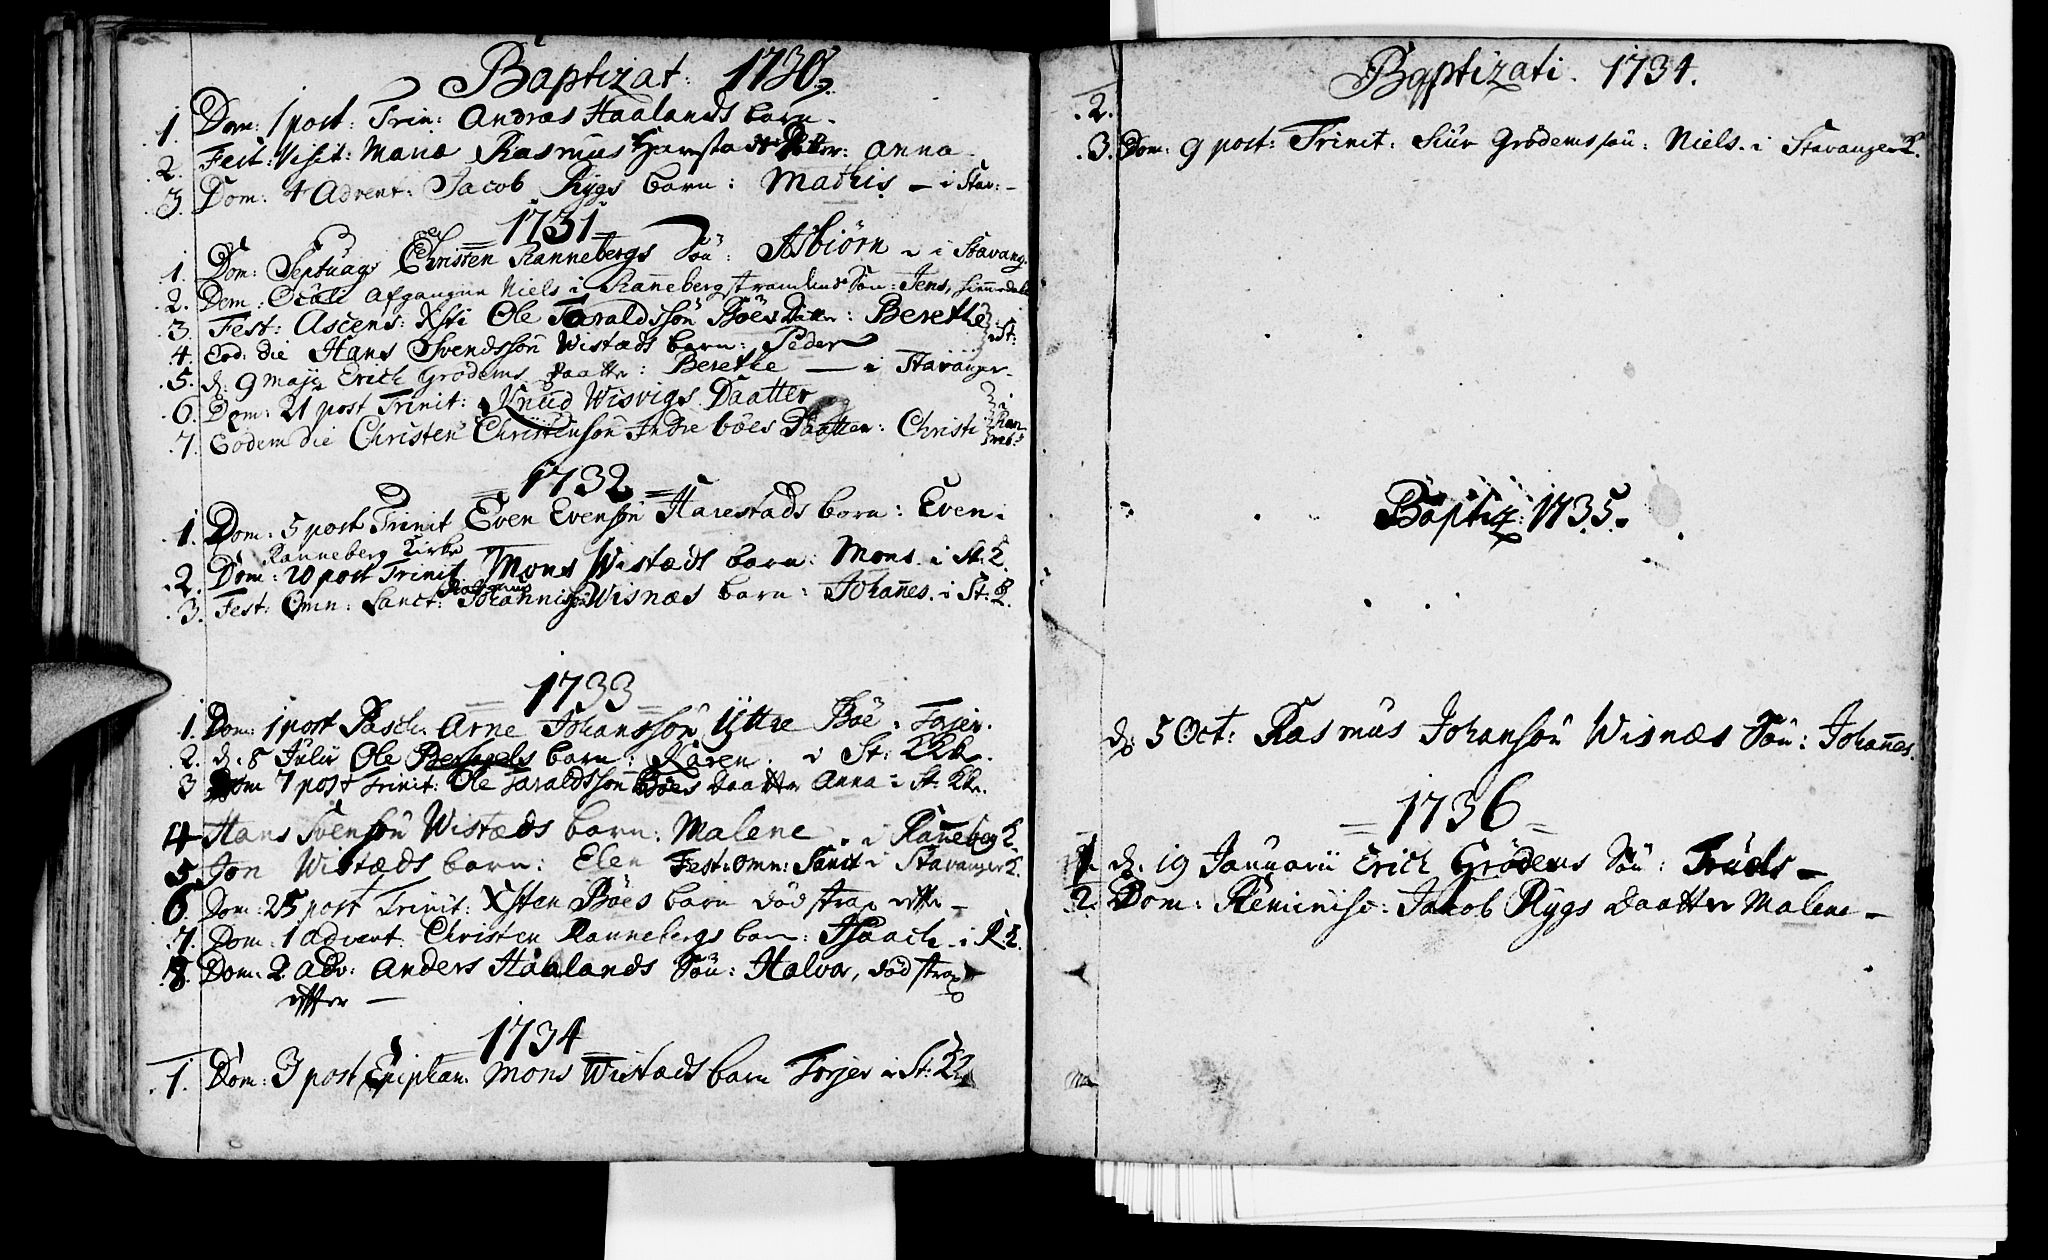 Baptizat: 1730.
1. Dom: 1 post: Trin: Andras Haalands barn.
2. Fest: Visit: Mariæ Rasmus Harestads Datter: Anna
3. Dom: 4 Advent: Jacob Rygs barn: Mathis — i Stav: —
1731
1. Dom: Septuags Christen Rannebergs Sön: Asbiörn i Stavang.
2. Dom: Oculi afgangne Niels i Ranneberg Sön: Jens,
3. Fest: Ascens: Xsti Ole Taraldssön Böes Datter: Berethe
4. Eod: die Hans Svendssön Wistæds barn: Peder i St:
5. d. 9 Maji Erich Grödems Daatter: Berethe — i Stavanger.
6. Dom: 21 post Trinit: Knud Wisvigs Daatter
7. Eodem die Christen Christensön Indre böes Daatter: Christi i Ran
neb:
1732
1. Dom: 5 post Trinit Even Evensön Harestads barn: Even i
Ranneberg Kirke
2. Dom: 20 post Trinit. Mons Wistæds barn: Mons. i St: K.
3. Fest: Omn: Sanct: Rasmus Johannisön Wisnæs barn: Johañes. i St: K.
1733
1. Dom: 1 post Pasch. Arne Johanssön Yttre Böe. Tojer.
2. d. 8 Julii Ole barn: Karen. i St: Kk.
3 Dom 7 post Trinit: Ole Taraldssön Böes Daatter Anna i St: Kk.
4 Hans Svensön Wistæds barn: Malene. i Rañeberg K.
5. Jon Wistæds barn: Elen Fest: Omn: Sanct i Stavanger K.
6. Dom: 25 post Trinit: Xsten Böes barn död strax effter —
7. Dom: 1 Advent: Christen Rannebergs barn: Isaach. i R: K.
8. Dom: 2 adv: Anders Haalands Sön: Halvor, död strax
effter —
1734
1. Dom: 3 post Epiphan. Mons Wistæds barn Torjer i St: Kk.
Baptizati. 1734.
2.
3. Dom: 9 post: Trinit: Siur Grödems sön: Niels. i Stavanger K.
Baptiz: 1735.
d. 5 Oct: Rasmus Johansön Wisnæs Sön: Johañes.
1736
1. d. 19 Januarii Erich Grödems Sön: Truels —
2. Dom: Reminisc: Jakob Rygs Daatter Malene —